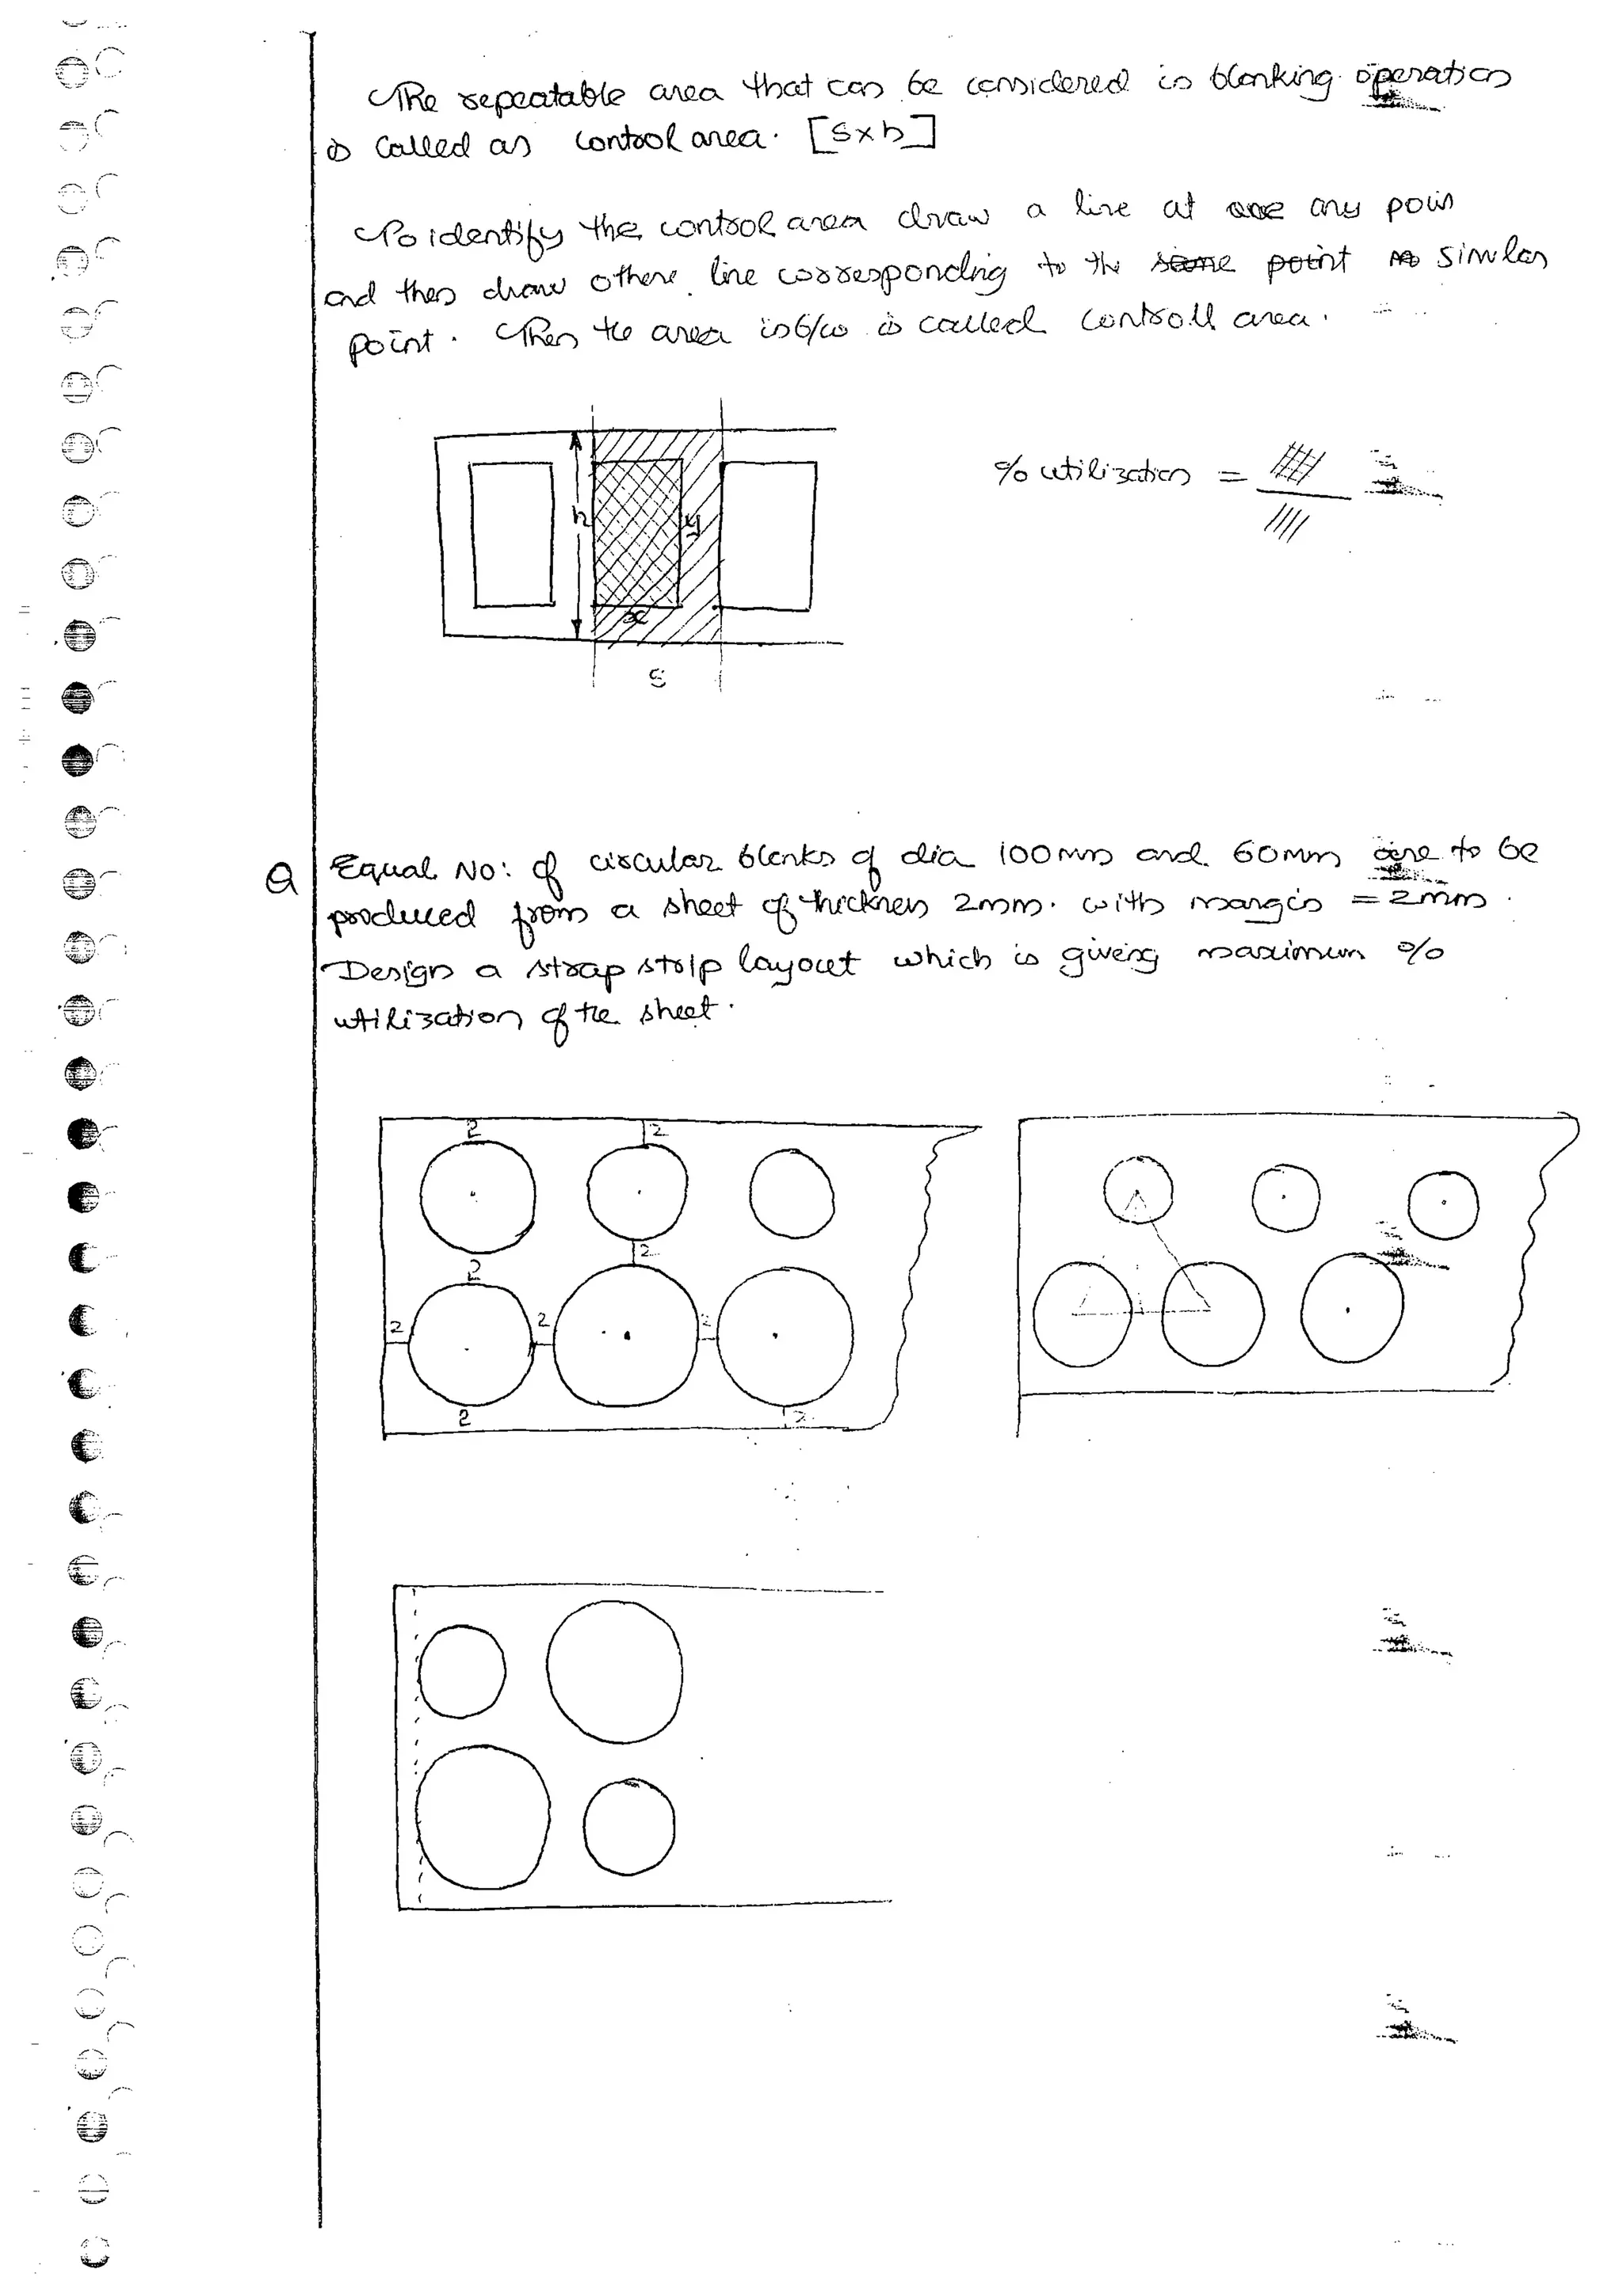 The repeatable area that can be considered in blanking operation
is called as control area. [S×h]
To identify the control area draw a line at one any poin
and then draw othere line corresponding to the same point as similar
point. Then the area inb/w is called controll area.
h
y
x
S
% utilization =
Q Equal No: of circular blanks of dia 100mm and 60mm are to be
produced from a sheet of thickness 2mm. with margin = 2mm.
Design a strap strip layout which is giveing maximum %
utilization of the sheet.
2 2
2
2
2 2 2
2 2